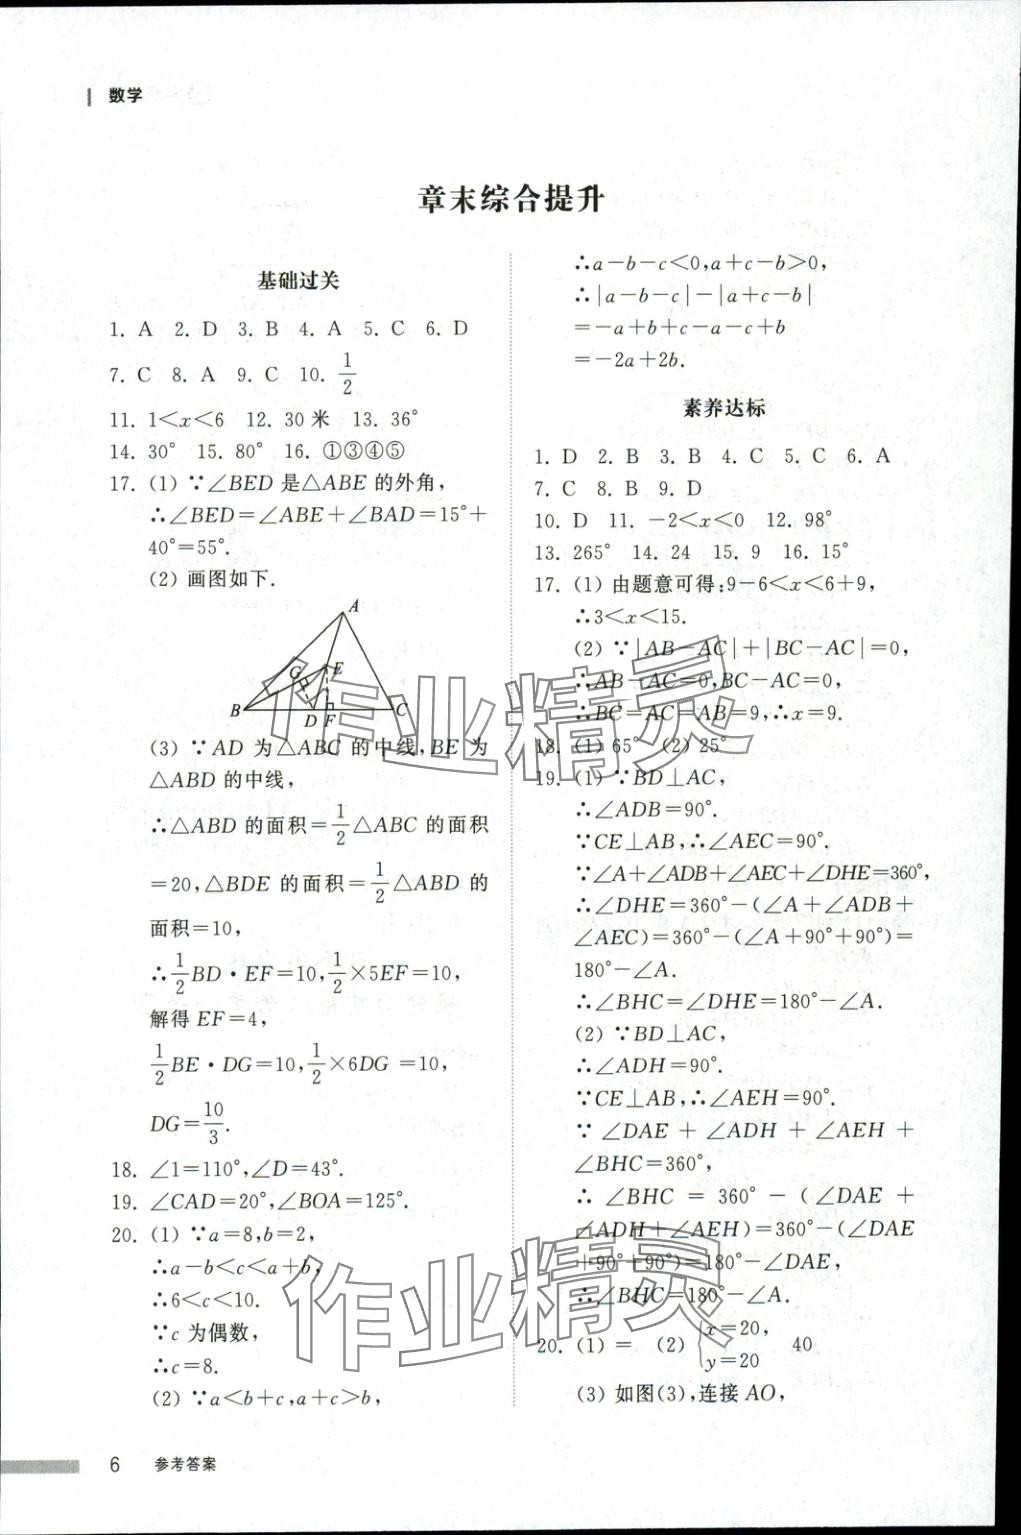 数学
章末综合提升
基础过关
1. A 2. D 3. B 4. A 5. C 6. D
7. C 8. A 9. C 10. 1/2
11. 1<x<6 12. 30 米 13. 36°
14. 30° 15. 80° 16. ①③④⑤
17. (1) ∵∠BED 是△ABE 的外角,
∴∠BED=∠ABE+∠BAD=15°+
40°=55°.
(2) 画图如下.
A
G
E
B
D
F
C
(3) ∵AD 为△ABC 的中线,BE 为
△ABD 的中线,
∴△ABD 的面积=1/2△ABC 的面积
=20,△BDE 的面积=1/2△ABD 的
面积=10,
∴1/2BD·EF=10,1/2×5EF=10,
解得 EF=4,
1/2BE·DG=10,1/2×6DG=10,
DG=10/3.
18. ∠1=110°,∠D=43°.
19. ∠CAD=20°,∠BOA=125°.
20. (1) ∵a=8,b=2,
∴a-b<c<a+b,
∴6<c<10.
∵c 为偶数,
∴c=8.
(2) ∵a<b+c,a+c>b,
∴a-b-c<0,a+c-b>0,
∴|a-b-c|-|a+c-b|
=-a+b+c-a-c+b
=-2a+2b.
素养达标
1. D 2. B 3. B 4. C 5. C 6. A
7. C 8. B 9. D
10. D 11. -2<x<0 12. 98°
13. 265° 14. 24 15. 9 16. 15°
17. (1) 由题意可得:9-6<x<6+9,
∴3<x<15.
(2) ∵|AB-AC|+|BC-AC|=0,
∴AB-AC=0,BC-AC=0,
∴BC=AC=AB=9,∴x=9.
18. (1) 65° (2) 25°
19. (1) ∵BD⊥AC,
∴∠ADB=90°.
∵CE⊥AB,∴∠AEC=90°.
∵∠A+∠ADB+∠AEC+∠DHE=360°,
∴∠DHE=360°-(∠A+∠ADB+
∠AEC)=360°-(∠A+90°+90°)=
180°-∠A.
∴∠BHC=∠DHE=180°-∠A.
(2) ∵BD⊥AC,
∴∠ADH=90°.
∵CE⊥AB,∴∠AEH=90°.
∵ ∠DAE + ∠ADH + ∠AEH +
∠BHC=360°,
∴ ∠BHC = 360° - (∠DAE +
∠ADH+∠AEH)=360°-(∠DAE
+90°+90°)=180°-∠DAE,
∴∠BHC=180°-∠A.
20. (1) = (2) {x=20, y=20 40
(3) 如图(3),连接 AO,
作业精灵
作业精灵
6 参考答案